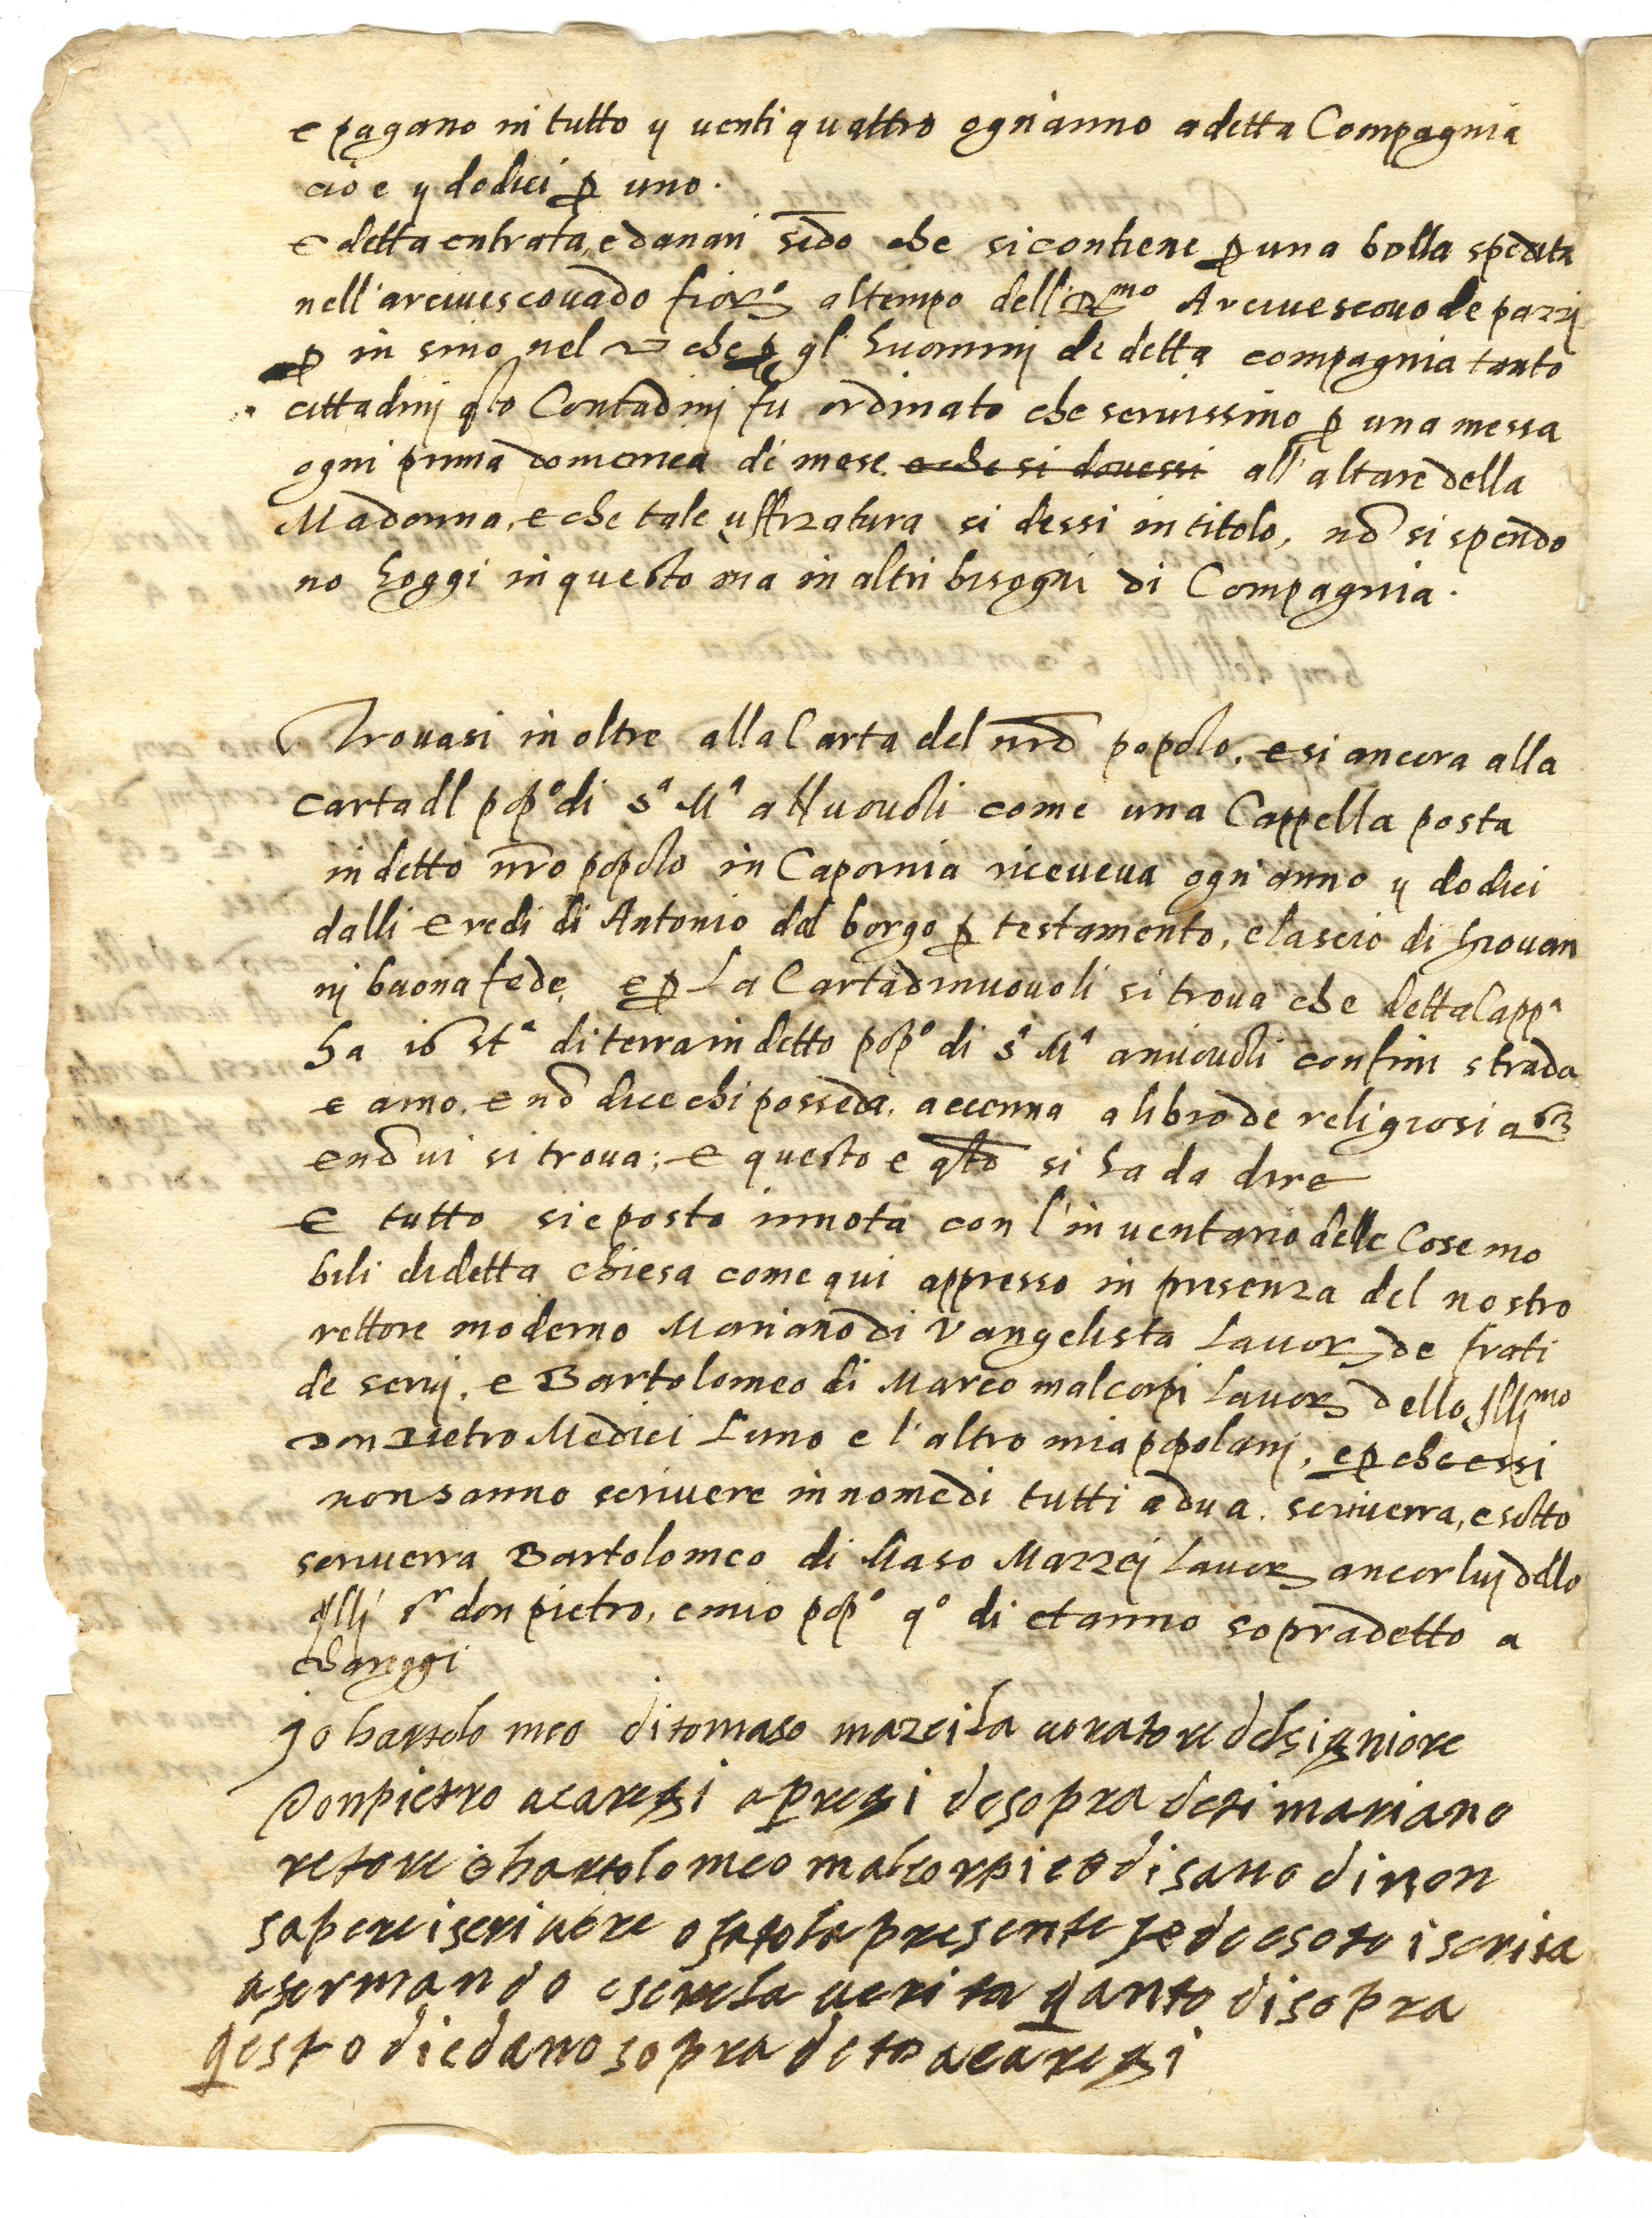 e pagano in tutto y venti quattro ogn'anno a detta Compagnia
cio e y dodici p uno.
e detta entrata, e danari sedo che si contiene p una bolla spedita
nell'arcivescovado fior.° al tempo dell' R.mo Arcivescovo de pazzi
p in sino nel che p gl' huomini de detta compagnia tanto
cittadini q.to Contadini fu ordinato che servissino p una messa
ogni prima domenica di mese e che si dovessi all'altare della
Madonna, e che tale uffizatura si dessi in titolo, nō si spendo
no hoggi in questo ma in altri bisogni di Compagnia.
Trovasi in oltre alla Carta del nrō popolo, e si ancora alla
carta dl pop.° di S.a M.a a Nuovoli come una Cappella posta
in detto nrō popolo in Capornia riceveva ogn'anno y dodici
dalli eredi di Antonio del borgo p testamento, e lascio di giovan
nj buona fede, e p La Carta di nuovoli si trova che detta Capp.a
ha 16 st.a di terra in detto pop.° di S.a M.a a nuovoli confini strada
e arno, e nō dice chi posseda, accenna a libro de religiosi a 63
e nō vi si trova; e questo e q.to si ha da dire
e tutto si e posto in nota con l'inventario delle Cose mo
bili di detta chiesa come qui appresso in presenza del nostro
rettore moderno Mariano di Vangelista Lavor de frati
de servj, e Bartolomeo di Marco malcorpi Lavor dello Ill.mo
Don Pietro Medici L'uno e l'altro mia popolanj, e p che essi
non sanno scrivere in nome di tutti a dua, scriverra, e sotto
scriverra Bartolomeo di Maso Mazzej Lavor ancor luj dello
Ill. S.r don pietro, e mio pop.° q.° di et anno sopradetto a
chareggi
Jo bartolo meo di tomaso mazei la voratore del signiore
Don pietro a caregi a pregi de sopra deti mariano
retore e bartolomeo malcorpi e o disano di non
sapere iscrivere o fato la presente fede e soto iscrita
afermando esere la verita qanto di sopra
qesto di ed ano sopra deto a caregi